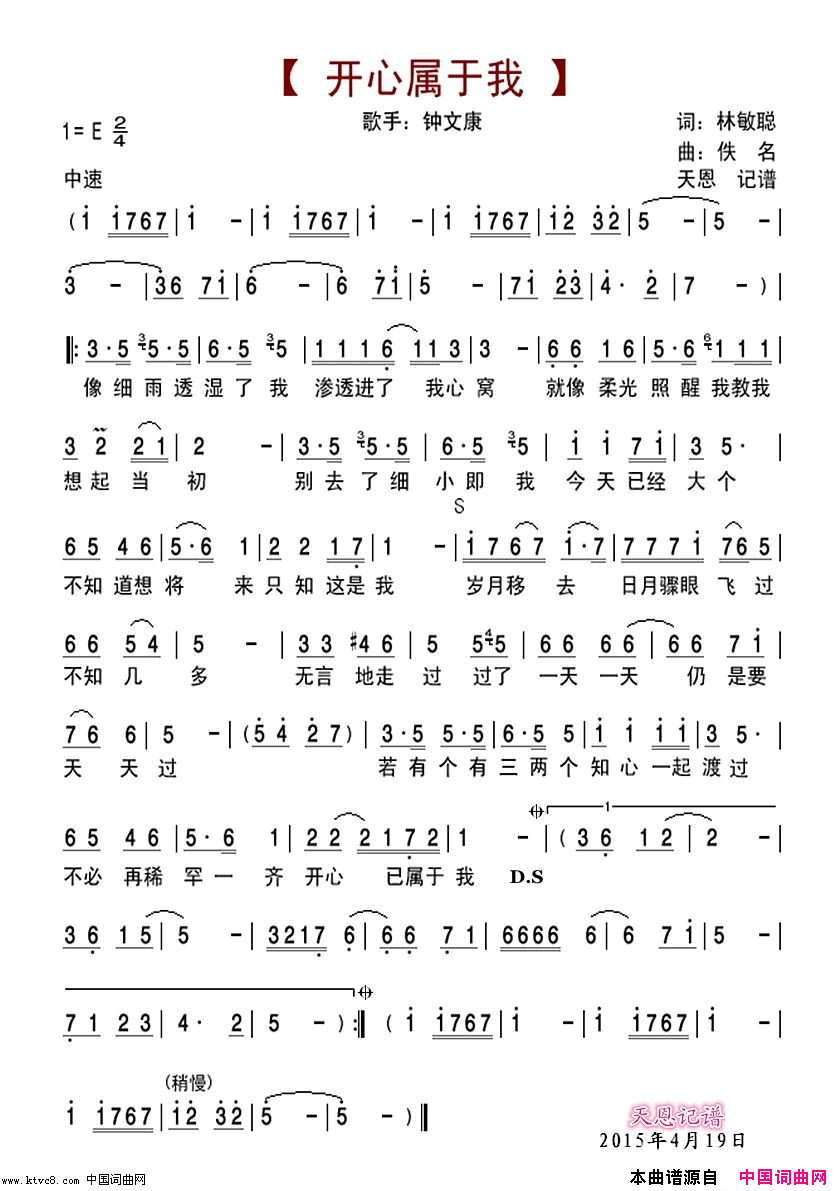 【 开心属于我 】
歌手：钟文康
1=E 2/4
词：林敏聪
曲：佚 名
中速
天恩 记谱
(i i767|i -|i i767|i -|i i767|i2 32|5 -|5 -|
3 -|36 7i|6 -|6 7i|5 -|7i 23|4· 2|7 -)|
‖:3·5 3 5·5|6·5 3 5|1116 113|3 -|66 16|5·6 6 111|
像细雨透湿了我 渗透进了 我心窝 就像柔光照醒我教我
3 2 21|2 -|3·5 3 5·5|6·5 3 5|i i 7i|3 5·|
想起当初 别去了细小即我 今天已经大个
S
65 46|5·6 1|2 2 17|1 -|i767 i·7|777i 765|
不知道想将 来只知这是我 岁月移去 日月骤眼飞过
66 54|5 -|33 #46|5 5 4 5|66 66|66 7i|
不知几多 无言地走过过了 一天一天 仍是要
76 6|5 -|(54 27)|3·5 5·5|6·5 5|i i ii|3 5·|
天 天过 若有个有三两个知心一起渡过
65 46|5·6 1|22 2172|1 -|(36 12|2 -|
1
不必再稀罕一齐开心 已属于我 D.S
36 15|5 -|3217 6|66 71|6666 6|6 71|5 -|
71 23|4· 2|5 -):‖(i i767|i -|i i767|i -|
(稍慢)
i i767|i2 32|5 -|5 -)‖
天恩记谱
2015年4月19日
www.ktvc8.com 中国词曲网
本曲谱源自 中国词曲网